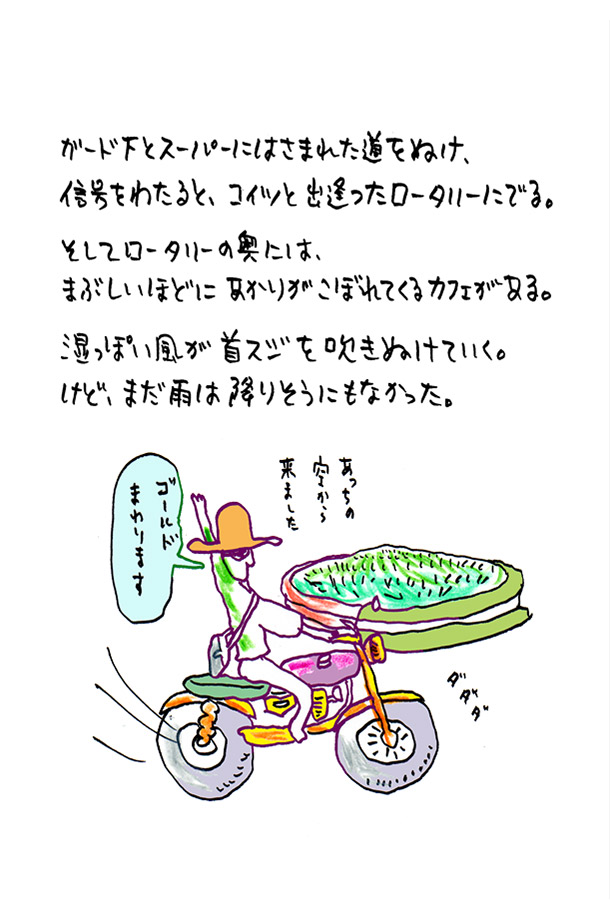 ガード下とスーパーにはさまれた道をぬけ、
信号をわたると、コイツと出逢ったロータリーにでる。
そしてロータリーの奥には、
まぶしいほどにあかりがこぼれてくるカフェがある。
湿っぽい風が首スジを吹きぬけていく。
けど、まだ雨は降りそうにもなかった。
あっちの
空から
来ました
ゴールド
まわります
ダダダ